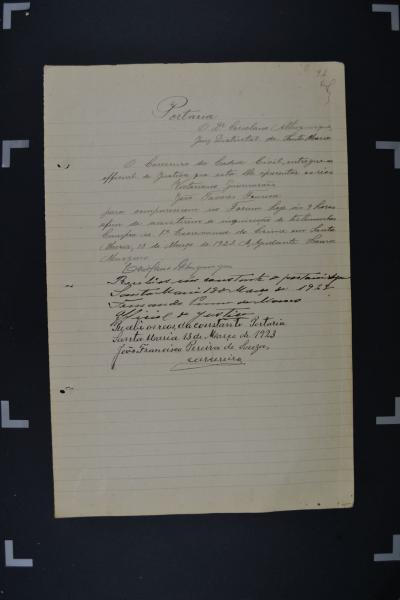 Portaria
O Dr. Coriolano Albuquerque
Juiz Districtal de Santa Maria
O Carcereiro da Cadeia Civil, entregue ao
official de Justiça que esta lhe apresentar os réos
Victoriano Guimarães
João Tavares
para comparecerem no Forum hoje às 9 horas
afim de assistirem a inquirição de testemunhas
Cumpra-se. 1ª do Crime em Santa
Maria, 13 de Março de 1923. O Ajudante
Coriolano Albuquerque
Recebi os réos constante a portaria
Santa Maria 13 de Março de 1923
Fernando
Official de Justiça
Recebi os reos, da constante Portaria
Santa Maria 13 de Março de 1923
João Francisco Pereira de Souza,
carcereiro